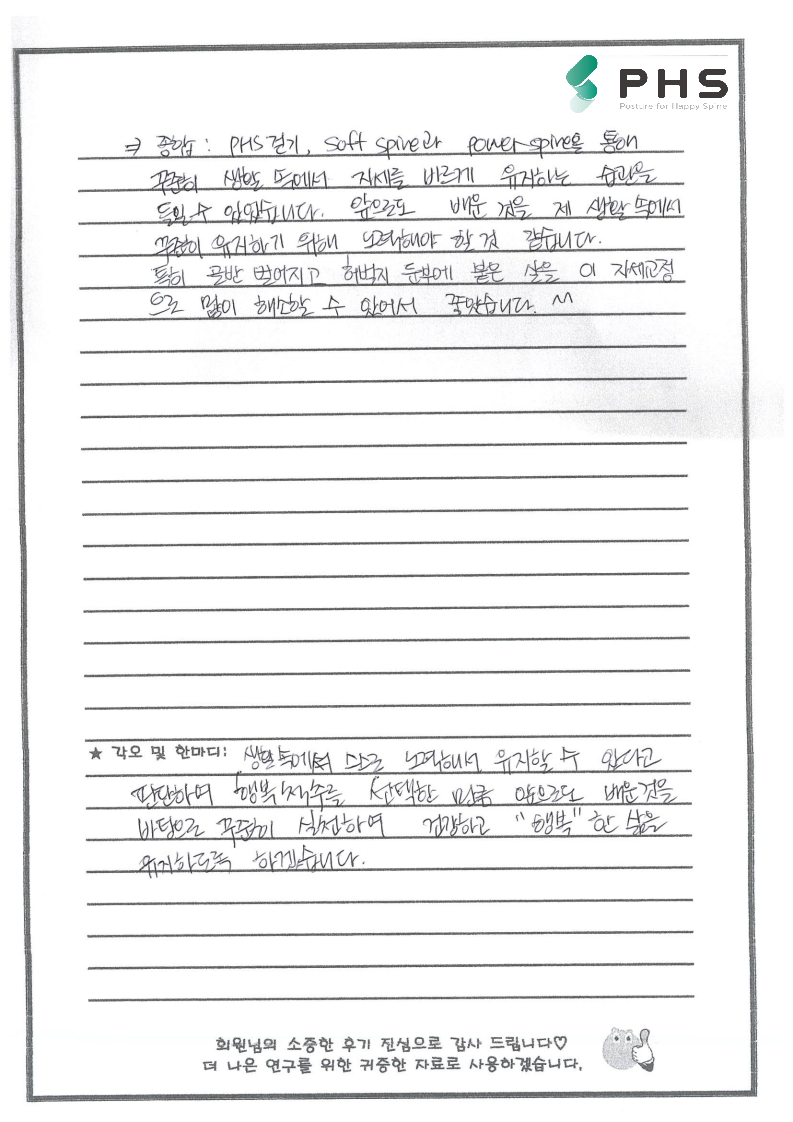 PHS
Posture for Happy Spine
⇒ 종합 : PHS 걷기, soft spine과 power spine을 통해
꾸준히 생활 속에서 자세를 바르게 유지하는 습관을
들일 수 있었습니다. 앞으로도 배운 것을 제 생활 속에서
꾸준히 유지하기 위해 노력해야 할 것 같습니다.
특히 골반 벌어지고 허벅지 둔부에 붙은 살을 이 자세교정
으로 많이 해소할 수 있어서 좋았습니다. ^^
★ 각오 및 한마디: 생활 속에서 스스로 노력해서 유지할 수 있다고
판단하며 행복척추를 선택한 만큼 앞으로도 배운 것을
바탕으로 꾸준히 실천하며 건강하고 "행복"한 삶을
유지하도록 하겠습니다.
회원님의 소중한 후기 진심으로 감사 드립니다♡
더 나은 연구를 위한 귀중한 자료로 사용하겠습니다.